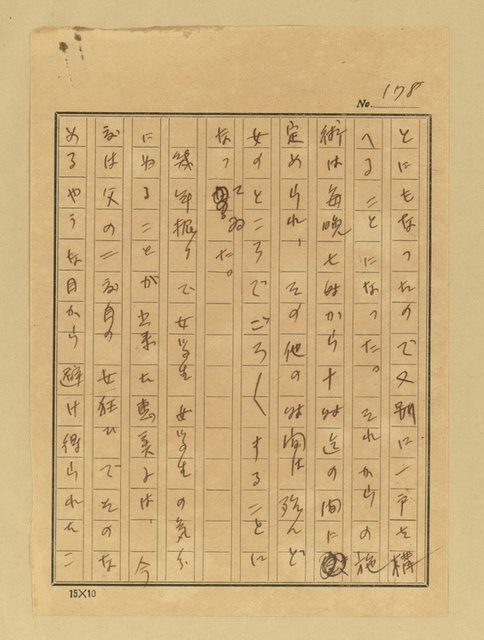 No. 178
とにもなったので又別に一戸を構
へることになった。それからの施
術は毎晩七時から十時迄の間に
定められ、その他の時間は殆んど
女のところでごろ〱することに
なってゐた。
幾年振りで女学生女学生の気分
になることが出来た恵美子は、今
度は父の二度目の女狂ひでその
めるやうな目から避け得られたこ
15×10